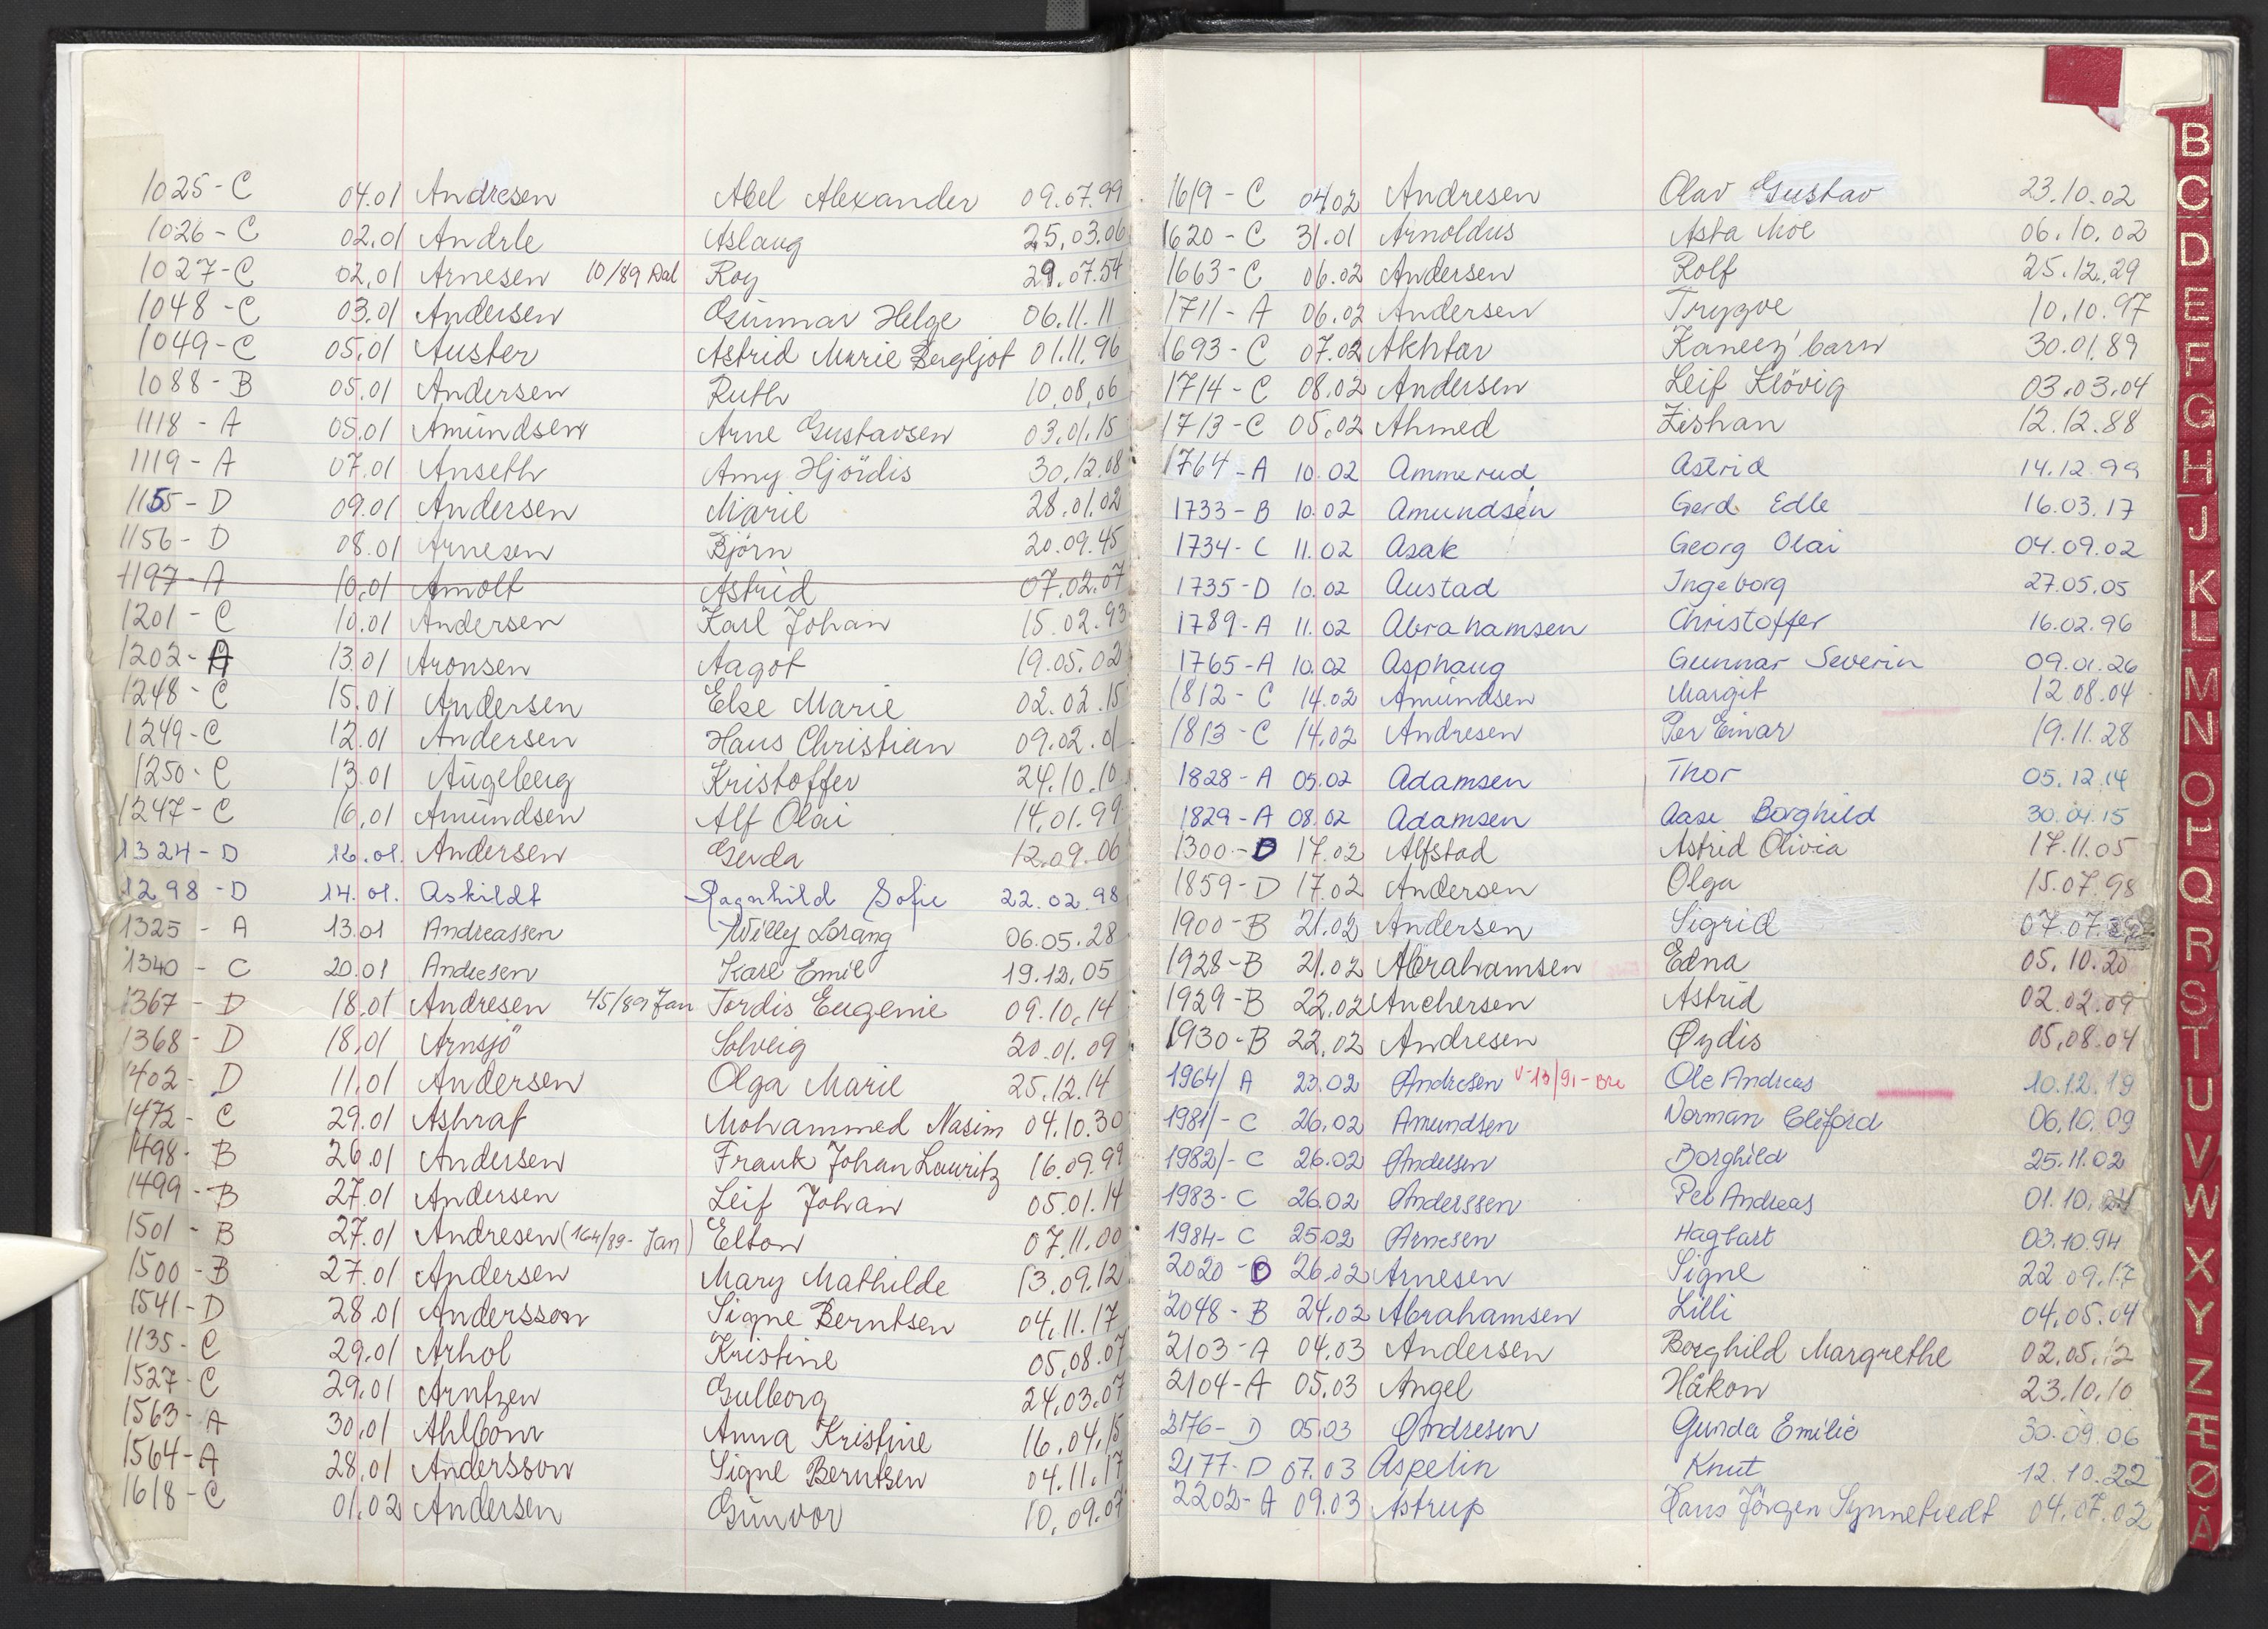 1025-C 04.01 Andresen Abel Alexander 09.07.99
1026-C 02.01 Andrle Aslaug 25.03.06
1027-C 02.01 Arnesen 10/89 Dal Roy 29.07.54
1048-C 03.01 Andersen Gunnar Helge 06.11.11
1049-C 05.01 Auster Astrid Marie Bergljot 01.11.96
1088-B 05.01 Andersen Ruth 10.08.06
1118-A 05.01 Amundsen Arne Gustavsen 03.01.15
1119-A 07.01 Anseth Amy Hjördis 30.12.08
1155-D 09.01 Andersen Marie 28.01.02
1156-D 08.01 Arnesen Björn 20.09.45
1197-A 10.01 Arnolt Astrid 07.02.07
1201-C 10.01 Andersen Karl Johan 15.02.93
1202-A 13.01 Aronsen Aagot 19.05.02
1248-C 15.01 Andersen Else Marie 02.02.15
1249-C 12.01 Andersen Hans Christian 09.02.01
1250-C 13.01 Augeberg Kristoffer 24.10.10
1247-C 16.01 Amundsen Alf Olai 14.01.99
1324-D 16.01. Andersen Gerda 12.09.06
1298-D 14.01. Askildt Ragnhild Sofie 22.02.98
1325-A 13.01 Andreassen Willy Lorang 06.05.28
1340-C 20.01 Andresen Karl Emil 19.12.05
1367-D 18.01 Andresen 45/89 Jan Tordis Eugenie 09.10.14
1368-D 18.01 Arnsjö Solveig 20.01.09
1402-D 11.01 Andersen Olga Marie 25.12.14
1472-C 29.01 Ashraf Mohammed Nasim 04.10.30
1498-B 26.01 Andersen Frank Johan Lauritz 16.09.99
1499-B 27.01 Andersen Leif Johan 05.01.14
1501-B 27.01 Andresen (164/89-Jan) Elton 07.11.00
1500-B 27.01 Andersen Mary Mathilde 13.09.12
1541-D 28.01 Andersson Signe Berntsen 04.11.17
1135-C 29.01 Arhol Kristine 05.08.07
1527-C 29.01 Arntzen Gulborg 24.03.07
1563-A 30.01 Ahlbom Anna Kristine 16.04.15
1564-A 28.01 Andersson Signe Berntsen 04.11.17
1618-C 01.02 Andersen Gunvor 10.09.07
1619-C 04.02 Andresen Olav Gustav 23.10.02
1620-C 31.01 Arnoldus Asta Moe 06.10.02
1663-C 06.02 Andersen Rolf 25.12.29
1711-A 06.02 Andersen Trygve 10.10.97
1693-C 07.02 Akhtar Kaneez' barn 30.01.89
1714-C 08.02 Andersen Leif Klövig 03.03.04
1713-C 05.02 Ahmed Zishan 12.12.88
1764-A 10.02 Ammerud Astrid 14.12.99
1733-B 10.02 Amundsen Gerd Edle 16.03.17
1734-C 11.02 Asak Georg Olai 04.09.02
1735-D 10.02 Austad Ingeborg 27.05.05
1789-A 11.02 Abrahamsen Christoffer 16.02.96
1765-A 10.02 Asphaug Gunnar Severin 09.01.26
1812-C 14.02 Amundsen Margit 12.08.04
1813-C 14.02 Andresen Per Einar 19.11.28
1828-A 05.02 Adamsen Thor 05.12.14
1829-A 08.02 Adamsen Aase Borghild 30.04.15
1300-D 17.02 Alfstad Astrid Olivia 17.11.05
1859-D 17.02 Andersen Olga 15.07.98
1900-B 21.02 Andersen Sigrid 07.07.
1928-B 21.02 Abrahamsen Edna 05.10.20
1929-B 22.02 Anchersen Astrid 02.02.09
1930-B 22.02 Andresen Øydis 05.08.04
1964/A 23.02 Andresen V-13/91-Bre Ole Andreas 10.12.19
1981/-C 26.02 Amundsen Norman Cliford 06.10.09
1982/-C 26.02 Andersen Borghild 25.11.02
1983-C 26.02 Anderssen Per Andreas 01.10.
1984-C 25.02 Arnesen Hagbart 03.10.94
2020-D 26.02 Arnesen Signe 22.09.17
2048-B 24.02 Abrahamsen Lilli 04.05.04
2103-A 04.03 Andersen Borghild Margrethe 02.05.12
2104-A 05.03 Angel Håkon 23.10.10
2176-D 05.03 Andresen Gunda Emilie 30.09.06
2177-D 07.03 Aspelin Knut 12.10.22
2202-A 09.03 Astrup Hans Jörgen Synnetvedt 04.07.02
B
C
D
E
F
G
H
J
K
L
M
N
O
P
Q
R
S
T
U
V
W
X
Y
Z
Æ
Ø
Å